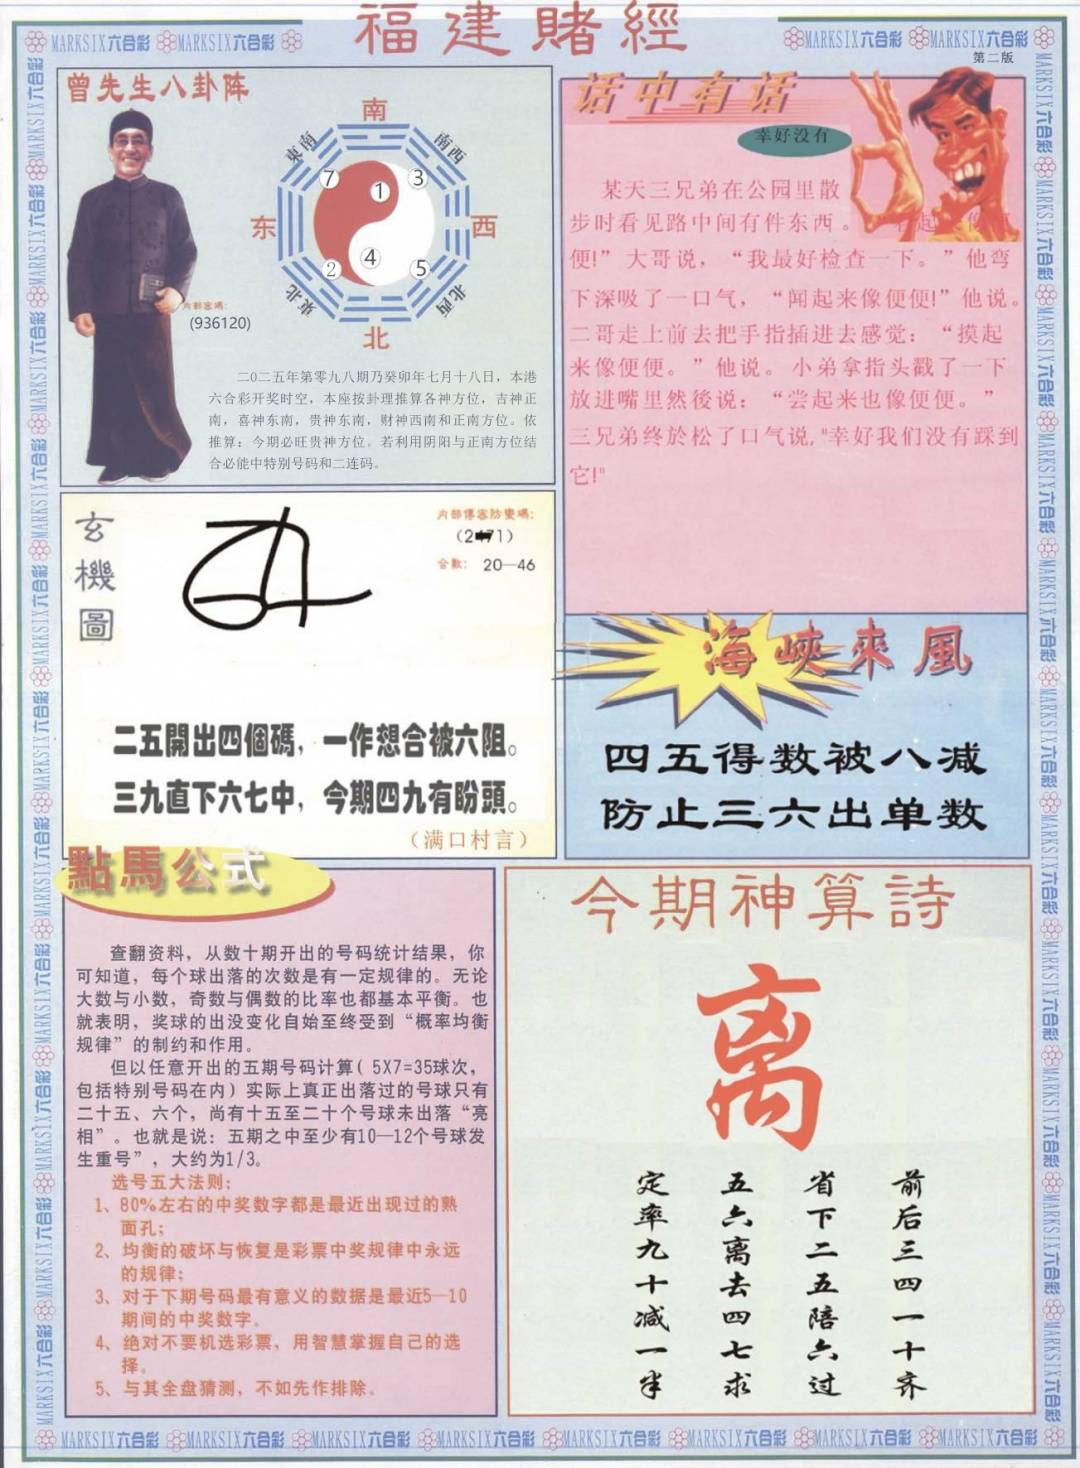 福建賭經
MARKSIX六合彩 MARKSIX六合彩
MARKSIX六合彩 MARKSIX六合彩
第二版
曾先生八卦阵
南
東南
南西
7
1
3
东
西
2
4
5
東北
北西
北
内部密碼:
(936120)
二0二五年第零九八期乃癸卯年七月十八日，本港
六合彩开奖时空，本座按卦理推算各神方位，吉神正
南，喜神东南，贵神东南，财神西南和正南方位。依
推算；今期必旺贵神方位。若利用阴阳与正南方位结
合必能中特别号码和二连码。
话中有话
幸好没有
某天三兄弟在公园里散
步时看见路中间有件东西。
便!”大哥说，“我最好检查一下。”他弯
下深吸了一口气，“闻起来像便便!”他说。
二哥走上前去把手指插进去感觉：“摸起
来像便便。”他说。小弟拿指头戳了一下
放进嘴里然後说：“尝起来也像便便。”
三兄弟终於松了口气说,"幸好我们没有踩到
它!"
玄機圖
内部傳密防變碼:
合數: 20—46
二五開出四個碼，一作想合被六阻。
三九直下六七中，今期四九有盼頭。
（满口村言）
海峽來風
四五得数被八减
防止三六出单数
點馬公式
查翻资料，从数十期开出的号码统计结果，你
可知道，每个球出落的次数是有一定规律的。无论
大数与小数，奇数与偶数的比率也都基本平衡。也
就表明，奖球的出没变化自始至终受到“概率均衡
规律”的制约和作用。
但以任意开出的五期号码计算( 5X7=35球次，
包括特别号码在内）实际上真正出落过的号球只有
二十五、六个，尚有十五至二十个号球未出落“亮
相”。也就是说：五期之中至少有10—12个号球发
生重号”，大约为1/3。
选号五大法则:
1、80%左右的中奖数字都是最近出现过的熟
面孔;
2、均衡的破坏与恢复是彩票中奖规律中永远
的规律;
3、对于下期号码最有意义的数据是最近5—10
期间的中奖数字。
4、绝对不要机选彩票，用智慧掌握自己的选
择。
5、与其全盘猜测，不如先作排除。
今期神算詩
离
前后三四一十齐
省下二五陪六过
五六离去四七求
定率九十减一半
MARKSIX六合彩 MARKSIX六合彩 MARKSIX六合彩 MARKSIX六合彩 MARKSIX六合彩 MARKSIX六合彩 MARKSIX六合彩 MARKSIX六合彩